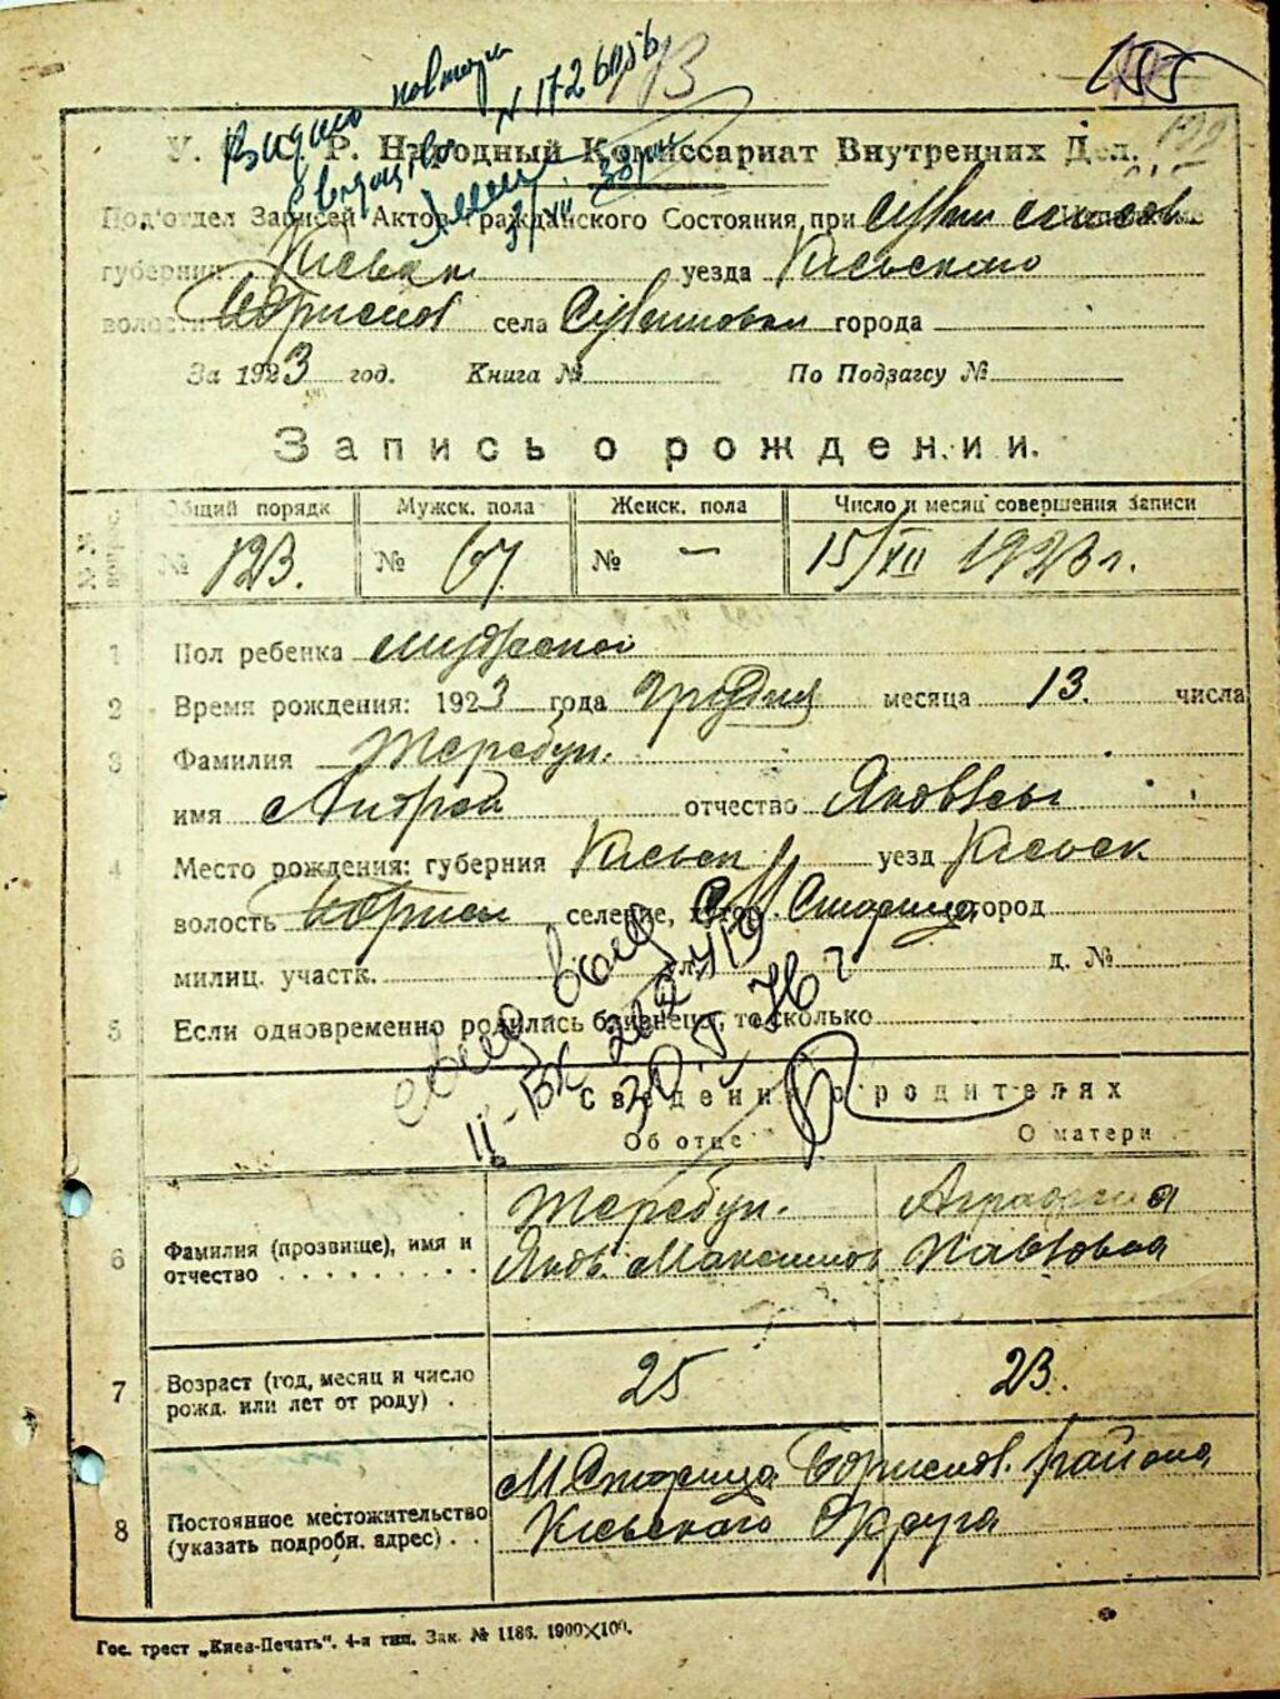 Видано повторн
свидоцтво № 1726056
3/XII
У. С. С. Р. Народный Комиссариат Внутренних Дел.
Под'отдел Записей Актов Гражданского Состояния при
губернии Киевск уезда Киевского
волости Борисполь села города
За 1923 год. Книга № По Подзагсу №
Запись о рождении.
Общий порядк Мужск. пола Женск. пола Число и месяц совершения записи
№ 123. № 67. № — 15/XII 1923 г.
1 Пол ребенка мужской
2 Время рождения: 1923 года грудня месяца 13. числа
3 Фамилия Теребун.
имя Андрей отчество Яковлев
4 Место рождения: губерния Киевск уезд Киевск
волость Борисп селение, хутор М Старица город
милиц. участк. ул. д. №
5 Если одновременно родились близнецы, то сколько
Сведения о родителях
Об отце О матери
6 Фамилия (прозвище), имя и отчество
Теребун. Аграфена
Яков Максимов Павловна
7 Возраст (год, месяц и число рожд. или лет от роду) . 25 23.
8 Постоянное местожительство (указать подробн. адрес) . .
М Старица Борисполь. района
Киевского Округа
Гос. трест „Киев-Печать“. 4-я тип. Зак. № 1186. 1900X100.